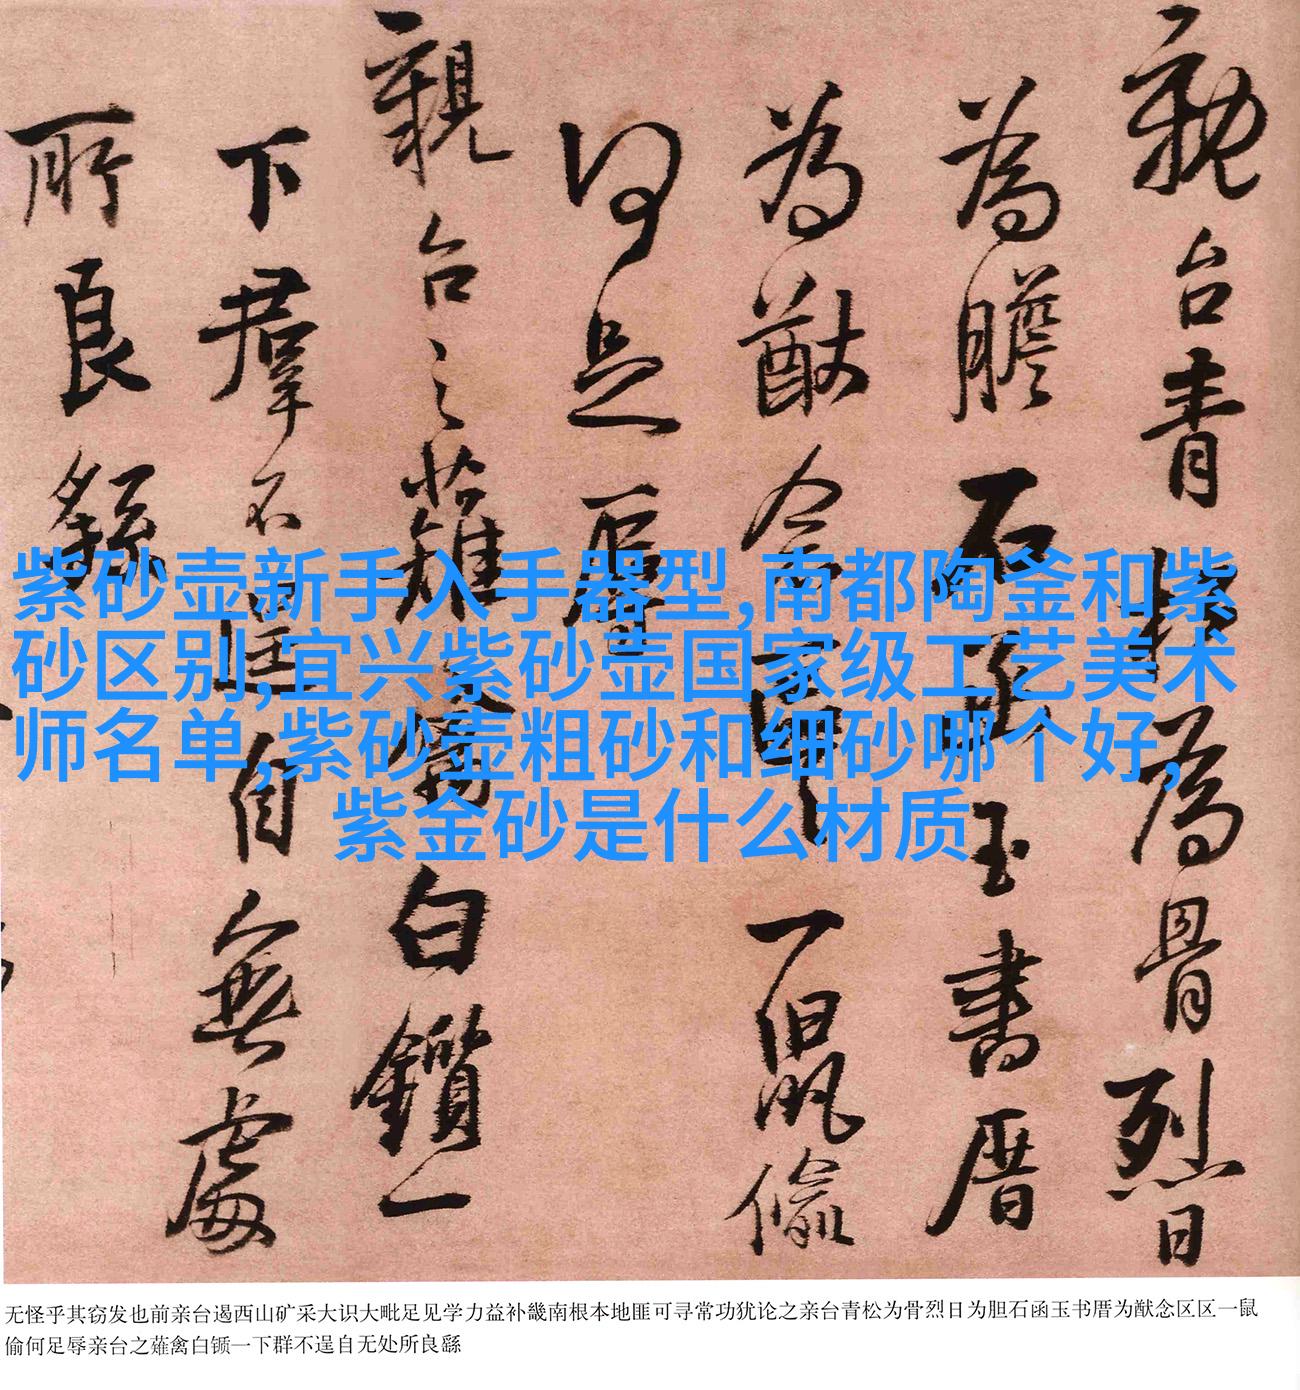 親台青松為骨烈日
為膽石函玉書厝
為猷念區區一鼠偷
何足辱
親台之薙禽白鑕一
下群不逞自無處
所良繇
紫砂壶新手入手器型,南都陶釜和紫
砂区别,宜兴紫砂壶国家级工艺美术
师名单,紫砂壶粗砂和细砂哪个好,
紫金砂是什么材质
无怪乎其窃发也前亲台遏西山矿采大识大毗足见学力益补畿南根本地匪可寻常功犹论之亲台青松为骨烈日为胆石函玉书厝为猷念区区一鼠
偷何足辱亲台之薙禽白锧一下群不逞自无处所良繇